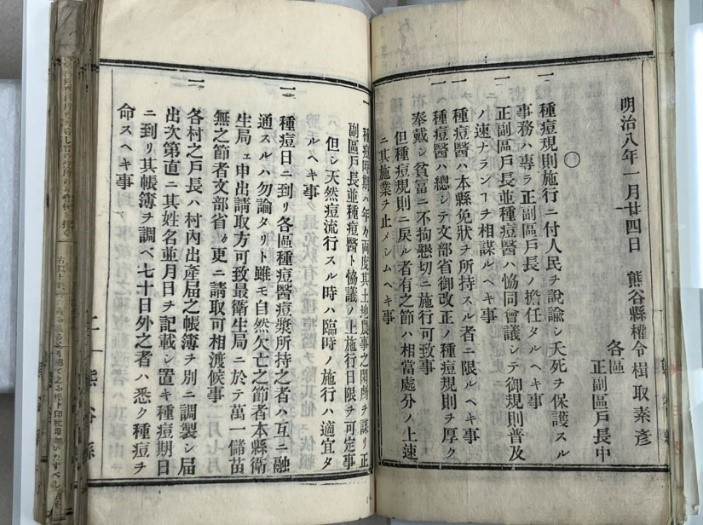 明治八年一月廿四日　熊谷縣權令楫取素彦
各區
正副區戸長中
〇
一　種痘規則施行ニ付人民ヲ說諭シ夭死ヲ保護スル
事務ハ專ラ正副區戸長ノ擔任タルヘキ事
一　正副區戸長並種痘醫ハ協同會議シテ御規則普及
ノ速ナランヿヲ相謀ルヘキ事
一　種痘醫ハ本縣免狀ヲ所持スル者ニ限ルヘキ事
一　種痘醫ハ總シテ文部省御改正ノ種痘規則ヲ厚ク
奉戴シ貧富ニ不拘懇切ニ施行可致事
但種痘規則ニ戾ル者有之節ハ相當處分ノ上速
ニ其施業ヲ止メシムヘキ事
一　種痘時期ハ年々兩度其土地農事之閑
副區戸長並種痘醫ト協議ノ上施行日限ヲ可定事
但シ天然痘流行スル時ハ臨時ノ施行ハ適宜タ
ルヘキ事
一　種痘日ニ到リ各區種痘醫痘漿所持之者ハ互ニ融
通スルハ勿論タリト雖モ自然欠亡之節者本縣衛
生局ェ申出請取方可致最衛生局ニ於テ萬一儲苗
無之節者文部省ヨリ更ニ請取可相渡候事
一　各村之戸長ハ村內出產届之帳簿ヲ別ニ調製シ届
出次第直ニ其姓名並月日ヲ記載シ置キ種痘期日
ニ到リ其帳簿ヲ調ベ七十日外之者ハ悉ク種痘ヲ
命スヘキ事
熊谷縣